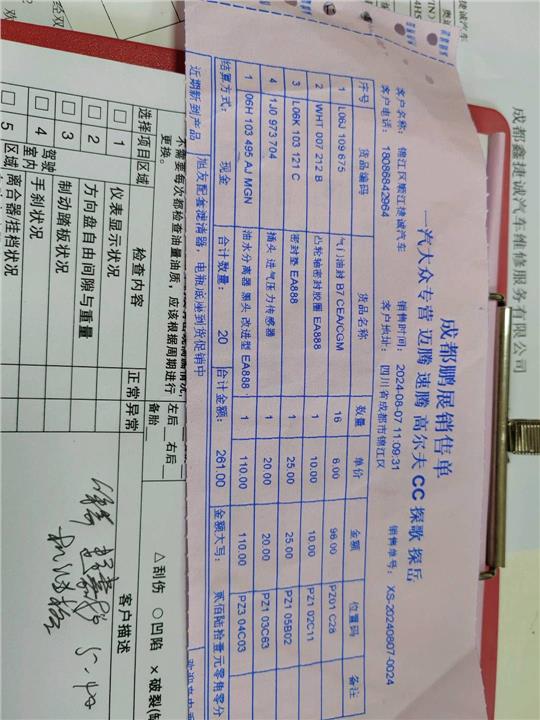 成都鑫捷诚汽车维修服务有限公司
成都鹏展销售单
一汽大众专营 迈腾 速腾 高尔夫 CC 探歌 探岳
客户名称: 锦江区锻江捷诚汽车 销售时间: 2024-08-07 11:09:31 销售单号: XS-20240807-0024
客户电话: 18086842964 客户地址: 四川省成都市锦江区
序号 货品编码 货品名称 数量 单价 金额 位置码 备注
1 L06J 109 675 气门油封 B7 CEA/CGM 16 6.00 96.00 PZ01 C28
2 WHT 007 212 B 凸轮轴密封胶圈 EA888 1 10.00 10.00 PZ1 02C11
3 L06K 103 121 C 密封垫 EA888 1 25.00 25.00 PZ1 05B02
4 1J0 973 704 插头 进气压力传感器 1 20.00 20.00 PZ1 03C63
1 06H 103 495 AJ MGN 油水分离器 黑头 改进型 EA888 1 110.00 110.00 PZ3 04C03
结算方式: 现金 合计数量: 20 合计金额: 261.00 金额大写: 贰佰陆拾壹元零角零分
近期新到产品 旭友配套滤清器、电瓶底座到货促销中
不需要每次都检查油量油质，应该根据周期进行
更换。
左后 右后
备胎
选择项目区域 检查内容 正常 异常
△刮伤 ○凹陷 ×破裂
客户描述
1 仪表显示状况
2 方向盘自由间隙与重量
3 制动踏板状况
4 驾驶室内 手刹状况
5 区域 离合器/挂档状况